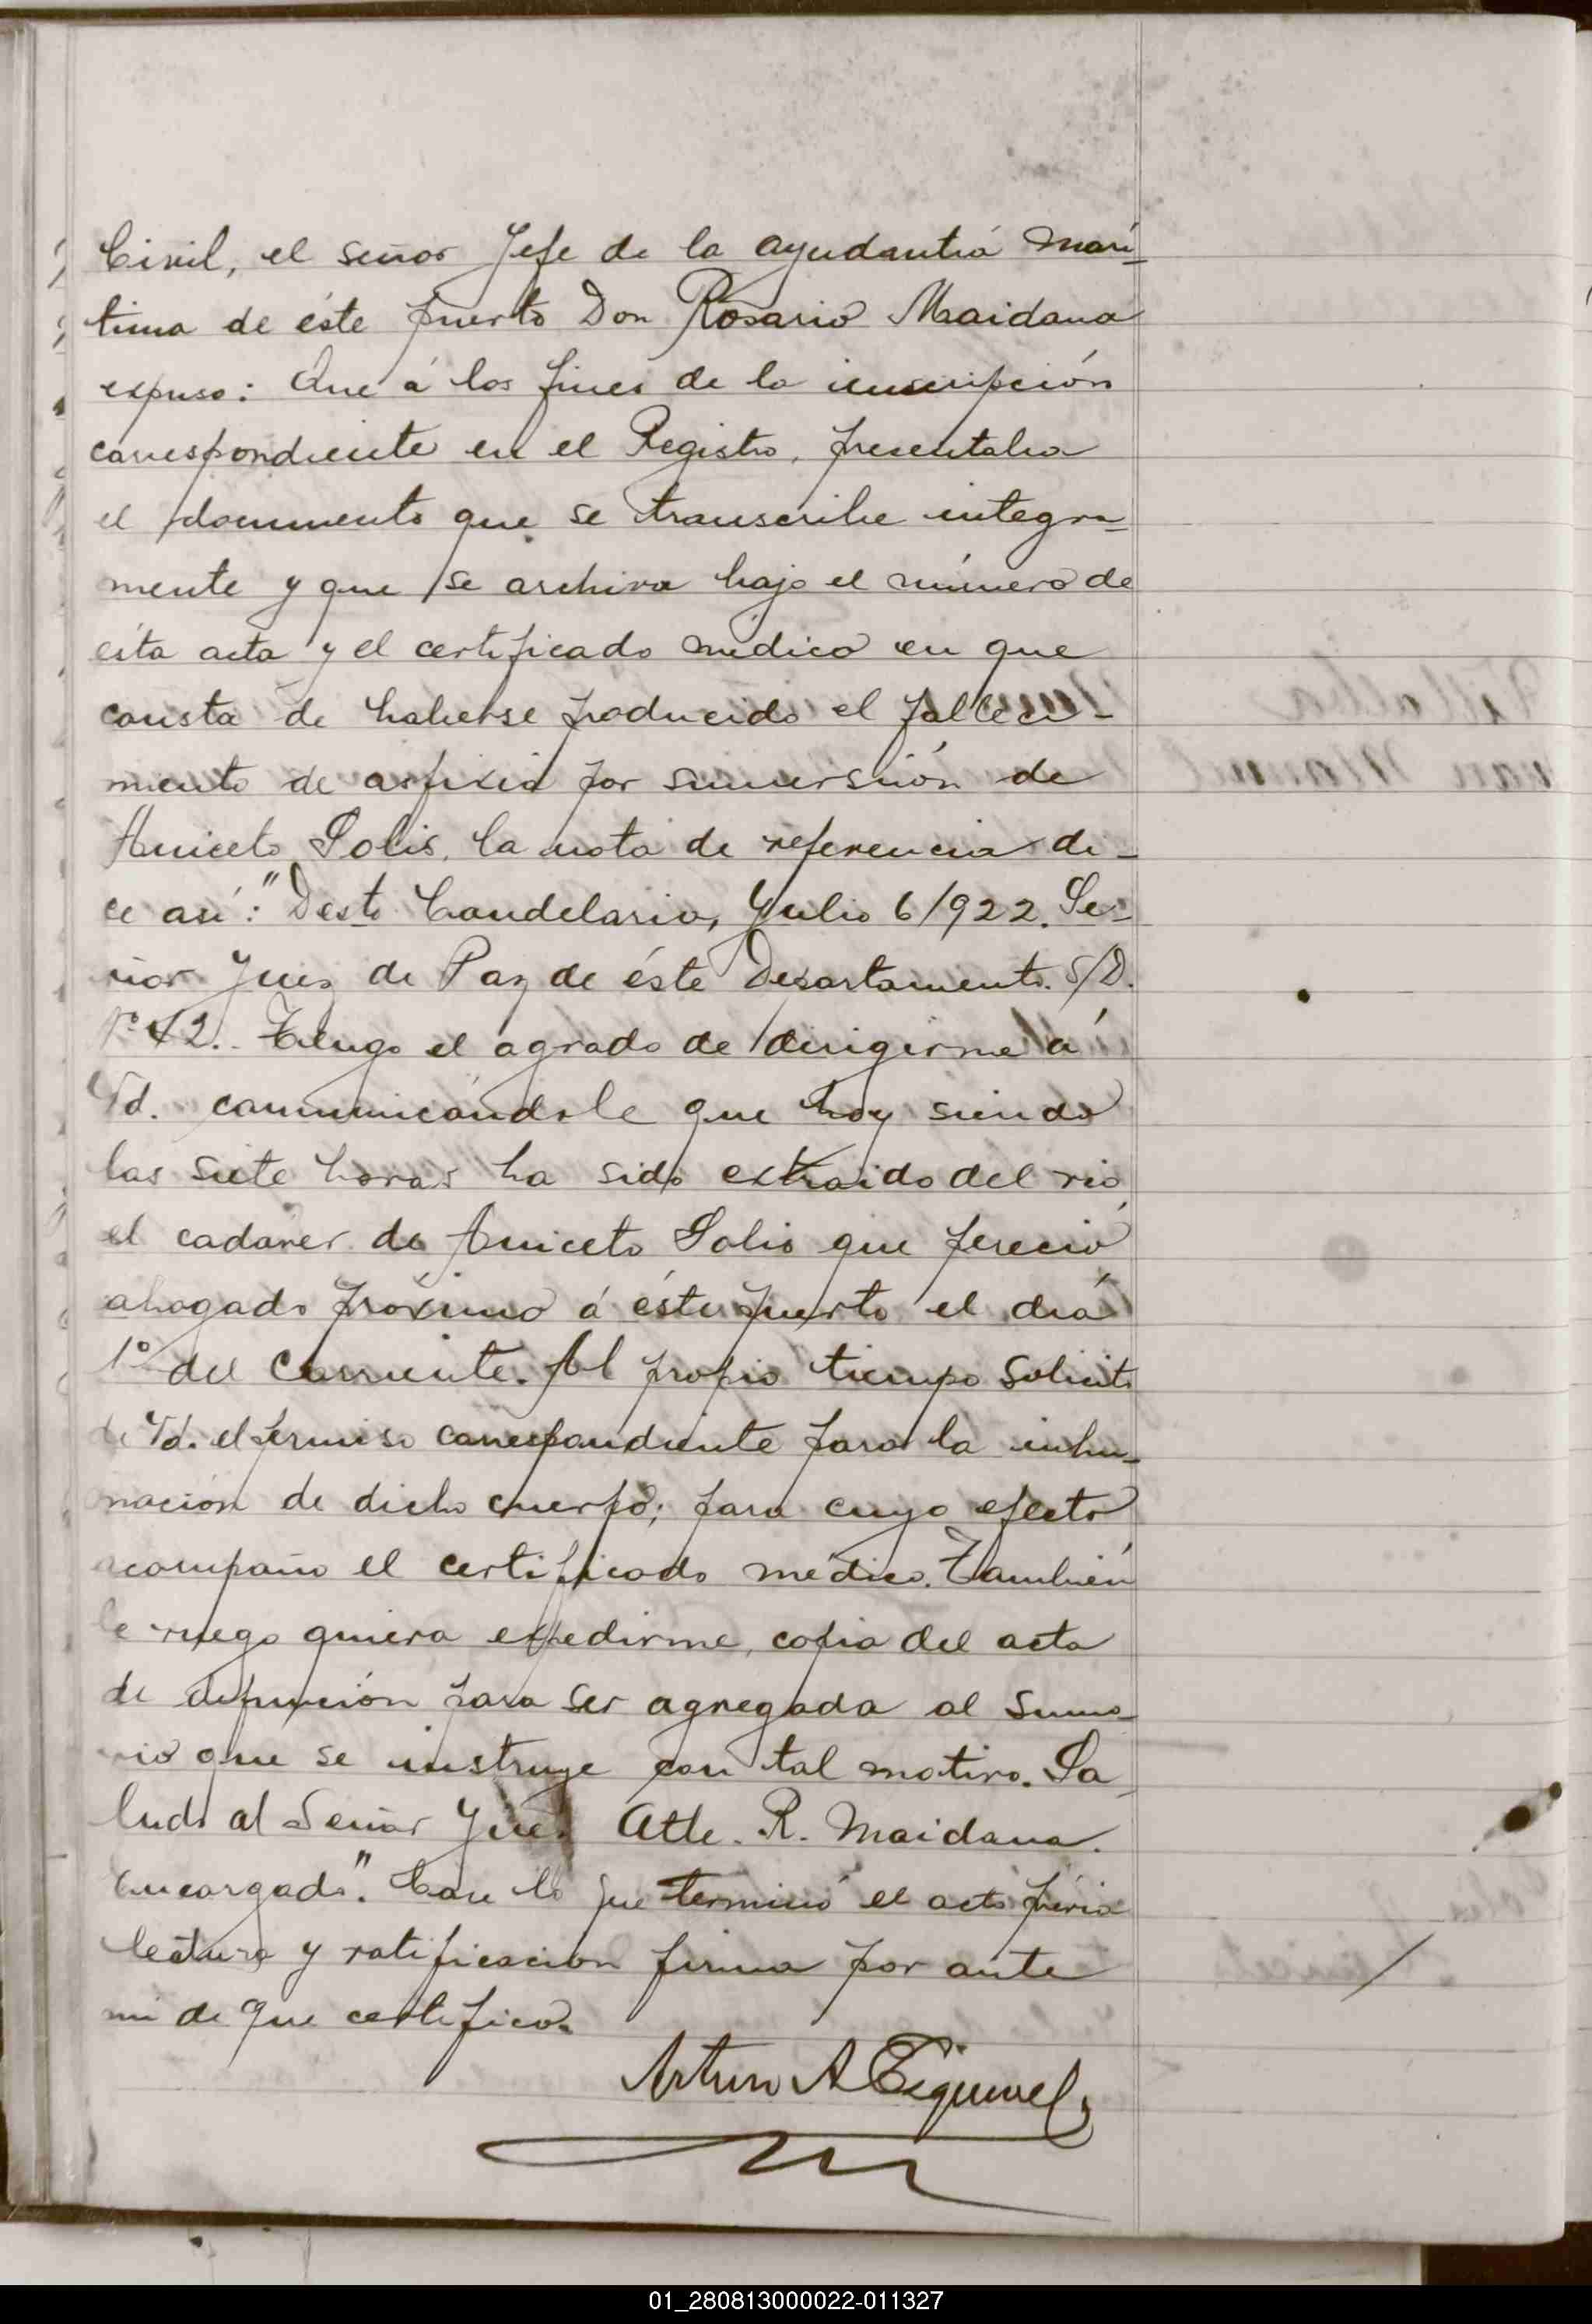 Civil, el señor Jefe de la ayudantía Marí-
tima de éste puerto Don Rosario Maidana
expuso: Que á los fines de la inscripción
correspondiente en el Registro, presentaba
el documento que se transcribe integra-
mente y que se archiva bajo el número de
ésta acta y el certificado médico en que
consta de haberse producido el falleci-
miento de asfixia por sumersión de
Aniceto Solis, la nota de referencia di-
ce así: "Desto Candelaria, Julio 6/922. Se-
ñor Juez de Paz de éste Departamento. S/D.
Nº 42. Tengo el agrado de dirigirme á
Vd. comunicándole que hoy siendo
las siete horas ha sido extraido del rio
el cadáver de Aniceto Solis que pereció
ahogado próximo á éste puerto el día
1º del corriente. Al propio tiempo solicito
de Vd. el permiso correspondiente para la inhu-
mación de dicho cuerpo; para cuyo efecto
acompaño el certificado médico. También
le ruego quiera expedirme, copia del acta
de defunción para ser agregada al suma-
rio que se instruye con tal motivo. Sa-
ludo al Señor Juez. Atte. R. Maidana.
Encargado". Con lo que terminó el acto prévia
lectura y ratificación firma por ante
mi de que certifico.
Arturo A Esquivel
01_280813000022-011327